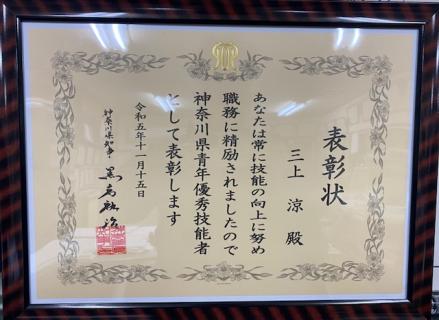 表彰状
三上 涼 殿
あなたは常に技能の向上に努め
職務に精励されましたので
神奈川県青年優秀技能者
として表彰します
令和五年十一月十五日
神奈川県知事 黒岩祐治